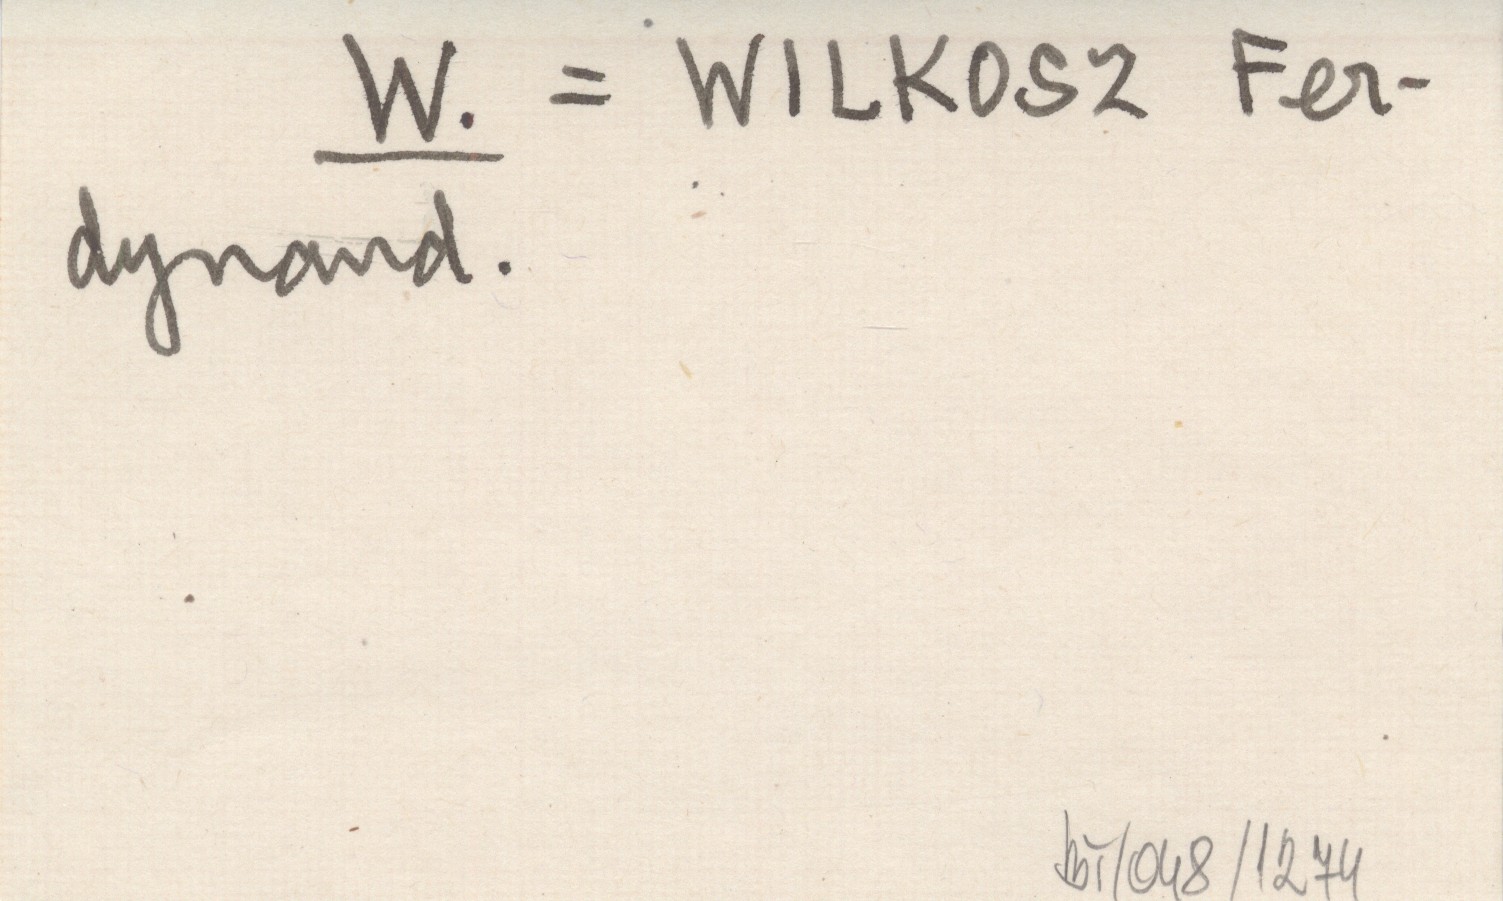 W. = WILKOSZ Fer-
dynand.
/048/1274